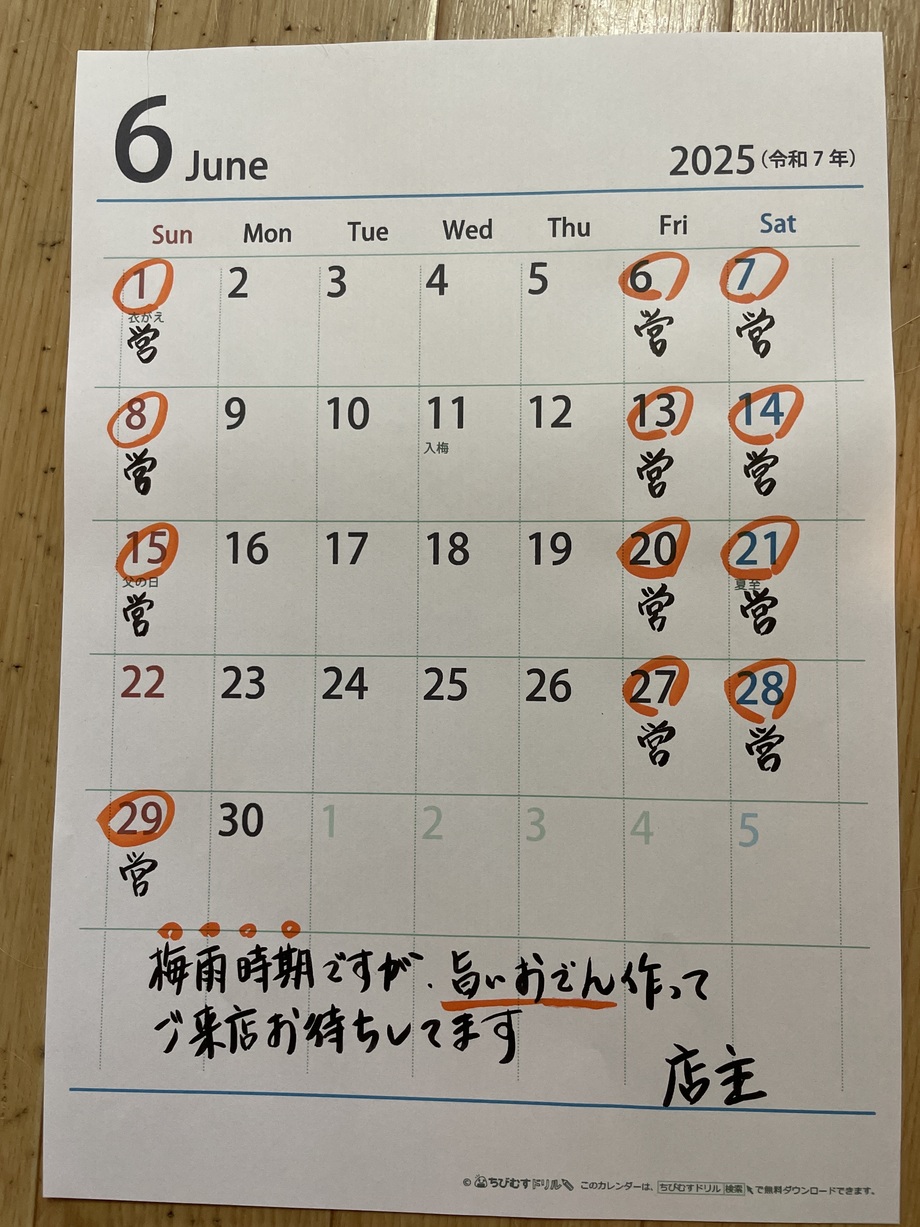 6 June 2025(令和7年)
Sun Mon Tue Wed Thu Fri Sat
1 2 3 4 5 6 7
衣がえ
営 営 営
8 9 10 11 12 13 14
入梅
営 営 営
15 16 17 18 19 20 21
父の日 夏至
営 営 営
22 23 24 25 26 27 28
営 営
29 30 1 2 3 4 5
営
梅雨時期ですが、旨いおでん作って
ご来店お待ちしてます
店主
© ちびむすドリル このカレンダーは、ちびむすドリル 検索 で無料ダウンロードできます。